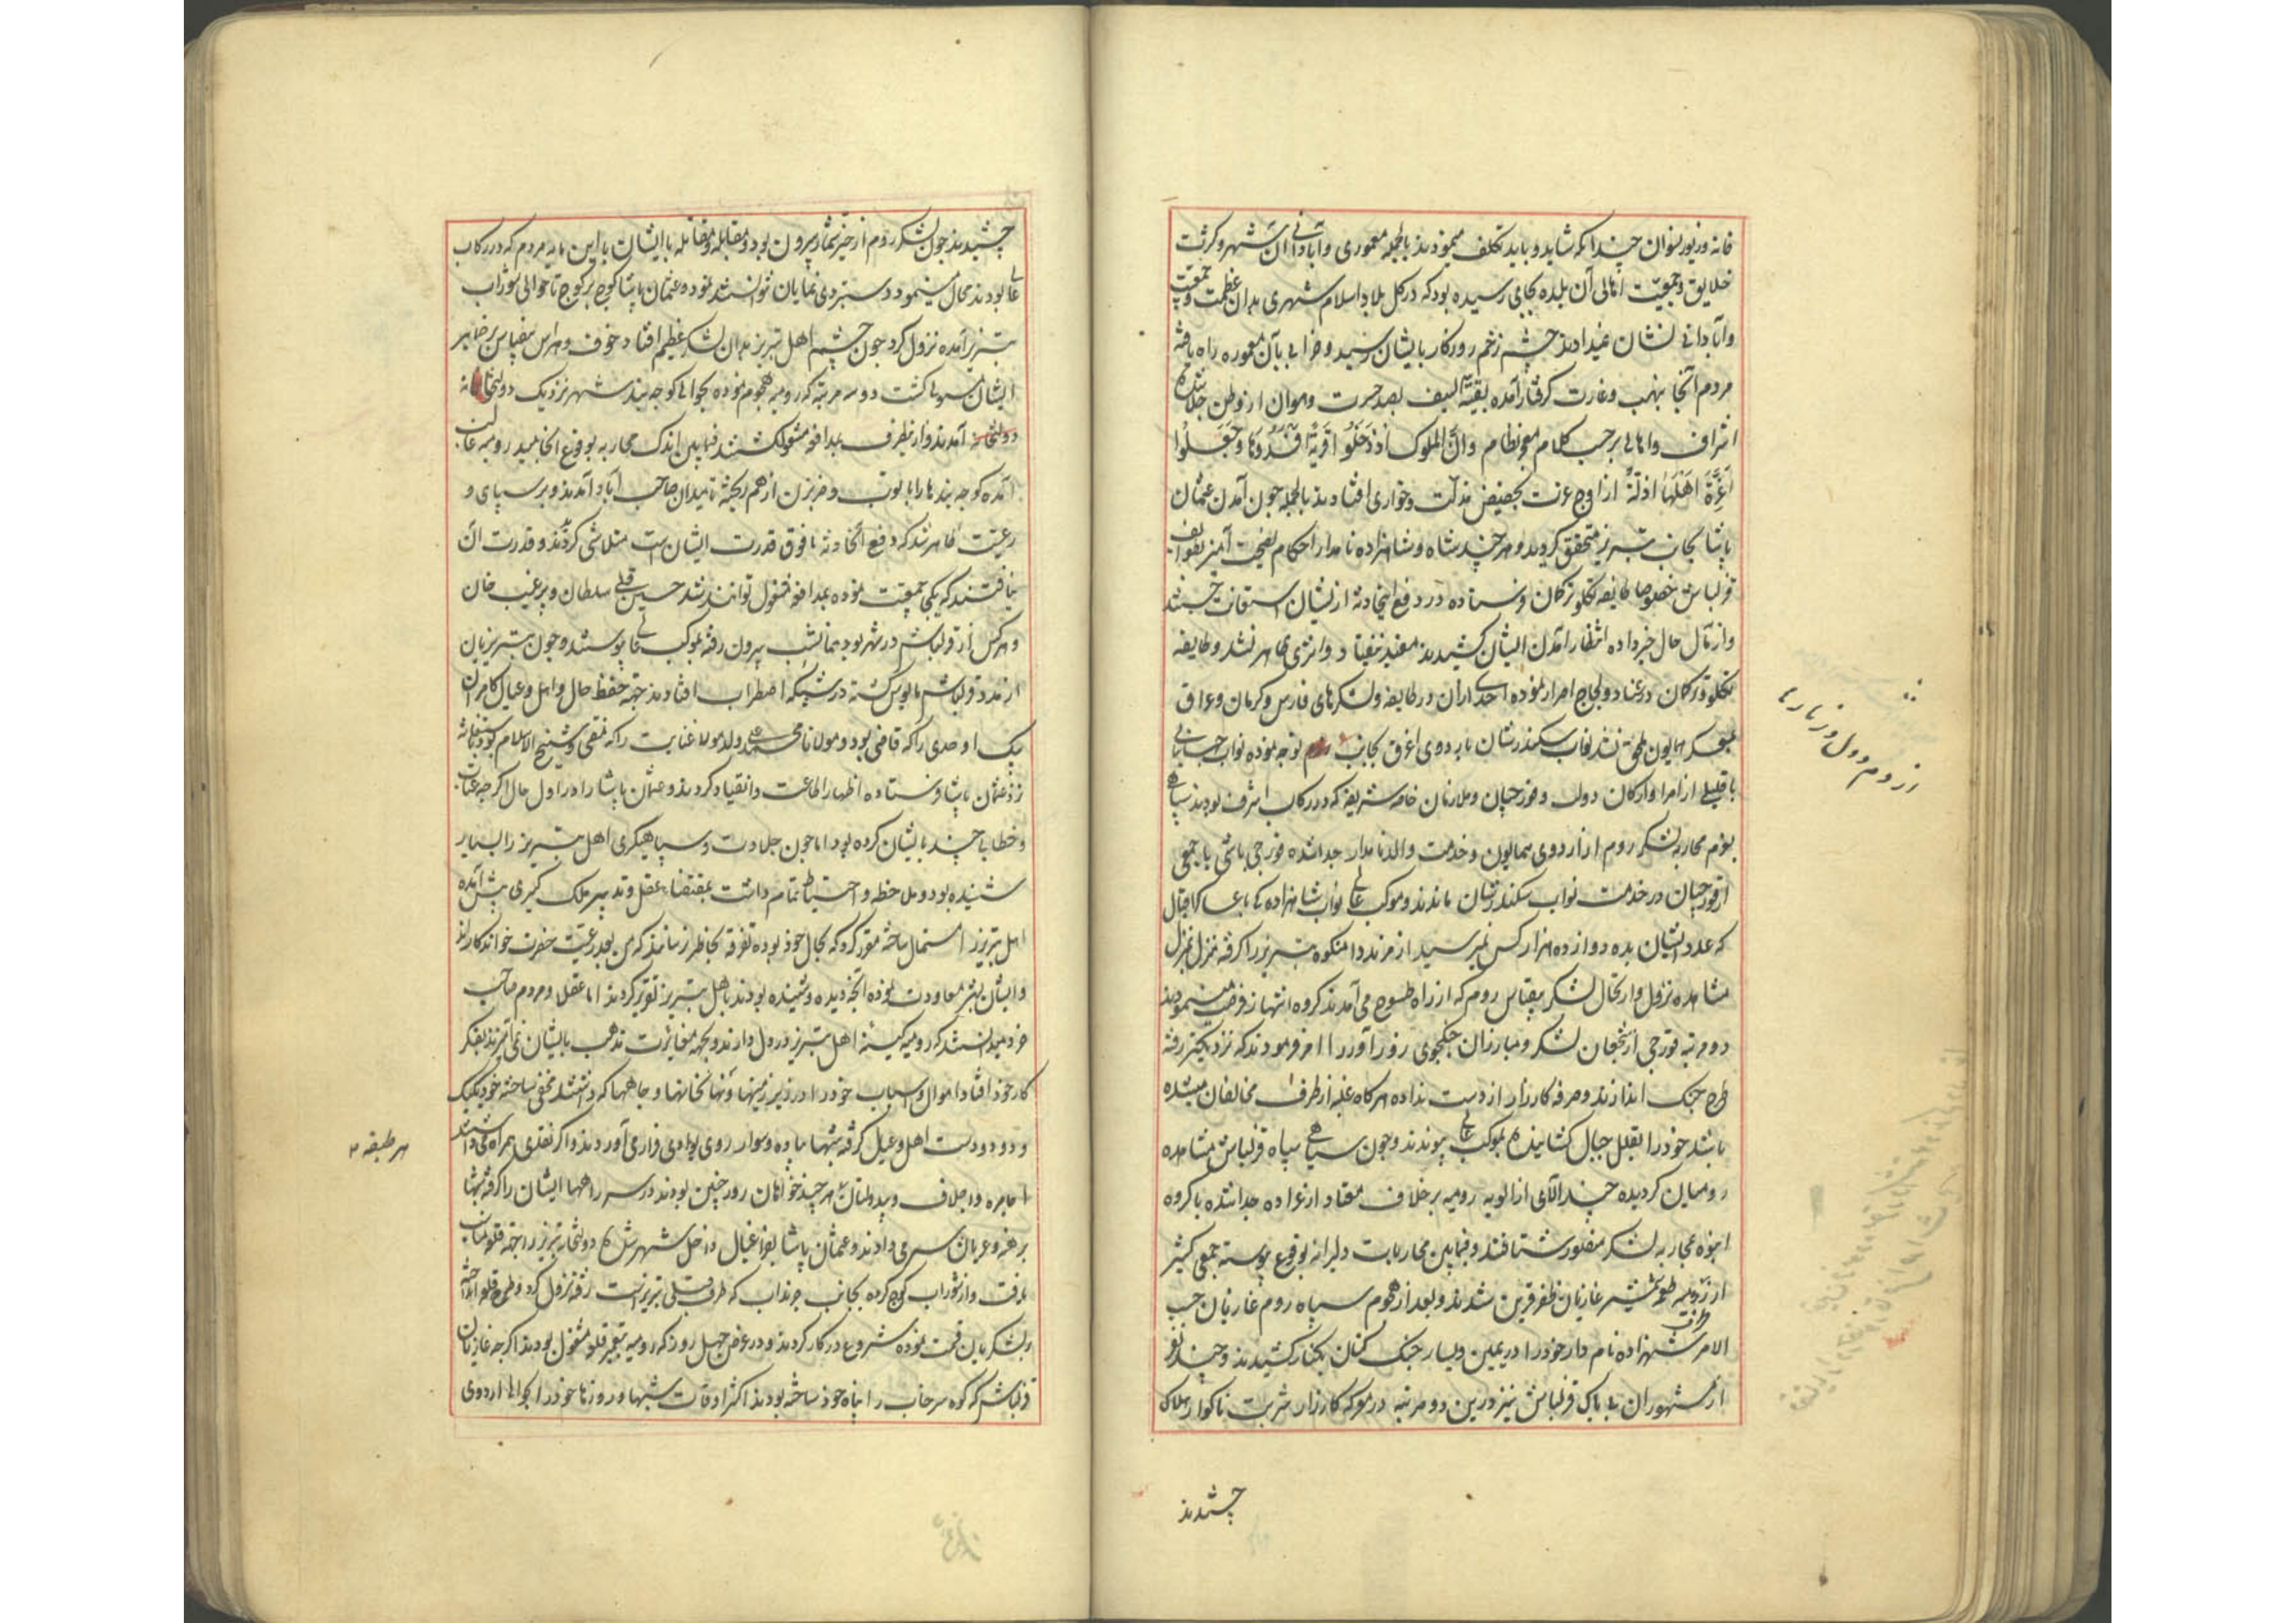 خانه و زیور نسوان چندانکه شاید و باید تکلف مینمودند بالجمله معموری و آبادانی آن شهر و کثرت
خلایق و جمعیت اهالی آن بلده بجایی رسیده بود که در کل بلاد اسلام شهری بدان عظمت و جمعیت
و آبادانی نشان نمیدادند چشم زخم روزکار بایشان رسید و خرابی بآن معموره راه یافته
مردم آنجا بنهب و غارت گرفتار آمده بقیة السیف بصد حسرت و هوان از وطن جلا شده
اشراف و اهالی برحسب کلام معجز نظام وان الملوک اذ دخلوا قریة افسدوها و جعلوا
اعزة اهلها اذلة از اوج عزت بحضیض مذلت و خواری افتادند بالجمله چون آمدن عثمان
پاشا بجانب تبریز متحقق گردید و هر چند شاه و شاهزاده نامدار احکام نصیحت آمیز بطوایف
قزلباش خصوصا طایفه تکلو ترکمان فرستاده در دفع اینحادثه ازیشان استعانت جستند
و از مآل حال خبر داده انتظار آمدن ایشان کشیدند مفید نیفتاد و اثری ظاهر نشد و طایفه
تکلو و ترکمان در عناد و لجاج اصرار نموده احدی از ان دو طایفه و لشکرهای فارس و کرمان و عراق
بمعسکر همایون ملحق نشد نواب سکندرشان با اردوی اغرق بجانب توجه نموده نواب جهانبانی
با قلیلی از امرا و ارکان دولت و قورچیان و ملازمان خاصه شریفه که در رکاب اشرف بودند
بعزم محاربه لشکر روم از اردوی همایون و خدمت والد نامدار جدا شده قورچی باشی با جمعی
از قورچیان در خدمت نواب سکندرشان ماندند و موکب عالی نواب شاهزاده کامیاب با عساکر اقبال
که عدد ایشان بده دوازده هزار کس نمیرسید از مرند دامنکوه تبریز را گرفته منزل بمنزل
مشاهده نزول و ارتحال لشکر بیقیاس روم که از راه طسوج می آمدند کرده انتهاز فرصت مینمودند
دو مرتبه فوجی از شجعان لشکر و مبارزان جنگجوی زورآور را امر فرمودند که نزدیکتر رفته
طرح جنگ اندازند و صرفه کارزار از دست نداده هرگاه غلبه از طرف مخالفان مشاهده
باشد خود را بقلل جبال کشانیده بموکب عالی پیوندند و چون سیاهی سپاه قزلباش مشاهده
رومیان گردیده چند آلای از الویه رومیه برخلاف معتاد از عراده جدا شده با گروه
انبوه بمحاربه لشکر منصور شتافتند و فیمابین محاربات دلیرانه بوقوع پیوسته جمعی کثیر
از رومیه طعمه شمشیر غازیان ظفرقرین شدند و بعد از هجوم سپاه روم غازیان حسب
الامر شهزاده نامدار خود را در یمین و یسار جنگ کنان بکنار کشیدند و چند نفر
از مشهوران بی باک قزلباش نیز درین دو مرتبه در معرکه کارزار شربت ناکوار هلاک
چشیدند
چشیدند چون لشکر روم از حیز شمار بیرون بود و مقابله و مقاتله با ایشان با این مایه مردم که در رکاب
عالی بودند محال مینمود دستبردی نمایان نتوانستند نمود و عثمان پاشا کوچ بر کوچ تا حوالی شوراب
تبریز آمده نزول کرد چون چشم اهل تبریز بدان لشکر عظیم افتاد خوف و هراس بیقیاس بر ضمایر
ایشان مستولی گشت دو سه مرتبه که رومیه هجوم نموده بحوالی کوچه بند شهر نزدیک دولتخانه
آمدند و ازینطرف بمدافعه مشغول گشتند فیمابین اندک محاربه بوقوع انجامید رومیه غالب
آمده کوچه بندها را بتوپ و ضربزن از هم ریخته تا میدان صاحب آباد آمدند و بر سپاهی و
رعیت ظاهر شد که دفع آنحادثه مافوق قدرت ایشان است متلاشی گردیدند و قدرت آن
نیافتند که یکجا جمعیت نموده بمدافعه مشغول توانند شد حسین قلی سلطان و پیرغیب خان
و هرکس از قزلباش در شهر بود همانشب بیرون رفته بموکب عالی پیوستند و چون تبریزیان
از مدد قزلباش مایوس گشته در شبکه اضطراب افتادند جهة حفظ حال و اهل و عیال کامران
بیک اوحدی را که قاضی بود و مولانا محمد علی ولد مولانا عنایت را که مفتی و شیخ الاسلام بود
نزد عثمان پاشا فرستاده اظهار اطاعت و انقیاد کردند و عثمان پاشا در اول حال اگرچه عتاب
و خطابی چند بایشان کرده بود اما چون جلادت و سپاهیگری اهل تبریز را بسیار
شنیده بود و ملاحظه و احتیاط تمام داشت بمقتضای عقل و تدبیر ملک گیری پیش آمده
اهل تبریز را استمال ساخته مقرر کرد که بحال خود بوده تفرقه بخاطر نرسانند که من بعد رعیت حضرت خواندکارند
و ایشان بشهر معاودت نموده آنچه دیده و شنیده بودند باهل تبریز تقریر کردند اما عقلا و مردم صاحب
خرد میدانستند که رومیه کینه اهل تبریز در دل دارند و بجهة مغایرت مذهب بایشان نمی آمیزند بفکر
کار خود افتاد اموال و اسباب خود را در زیر زمینها و نهانخانها و چاهها که داشتند مخفی ساخته خود یکیک
و دو دو دست اهل و عیال گرفته شبها پیاده و سوار روی بوادی فراری آوردند و اگر نقدی همراه میداشتند
اجامره و اجلاف و بیدولتان هر طبقه ۲ که خواهان روز چنین بودند در سر راهها ایشان را گرفته شبها
برهنه و عریان سر می دادند و عثمان پاشا بفراغبال داخل شهر شده دولتخانه تبریز را جهة قلعه مناسب
یافت و از شوراب کوچ کرده بجانب چرنداب که طرف قبلی تبریز است رفته نزول کرد و طرح قلعه انداخته
بلشکریان قسمت نموده شروع در کار کردند و در عرض چهل روز که رومیه بتعمیر قلعه مشغول بودند اگرچه غازیان
قزلباش که کوه سرخاب را پناه خود ساخته بودند اکثر اوقات شبها و روزها خود را بحوالی اردوی